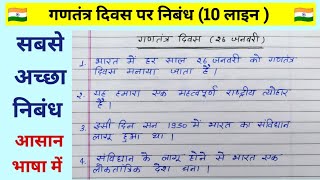 गणतंत्र दिवस पर निबंध (10 लाइन )
सबसे
अच्छा
निबंध
आसान
भाषा में
गणतंत्र दिवस (२६ जनवरी)
1. भारत में हर साल २६ जनवरी को गणतंत्र
दिवस मनाया जाता है ।
2. यह हमारा एक महत्वपूर्ण राष्ट्रीय त्यौहार
है ।
3. इसी दिन सन 1950 में भारत का संविधान
लागू हुआ था ।
4. संविधान के लागू होने से भारत एक
लोकतांत्रिक देश बना ।